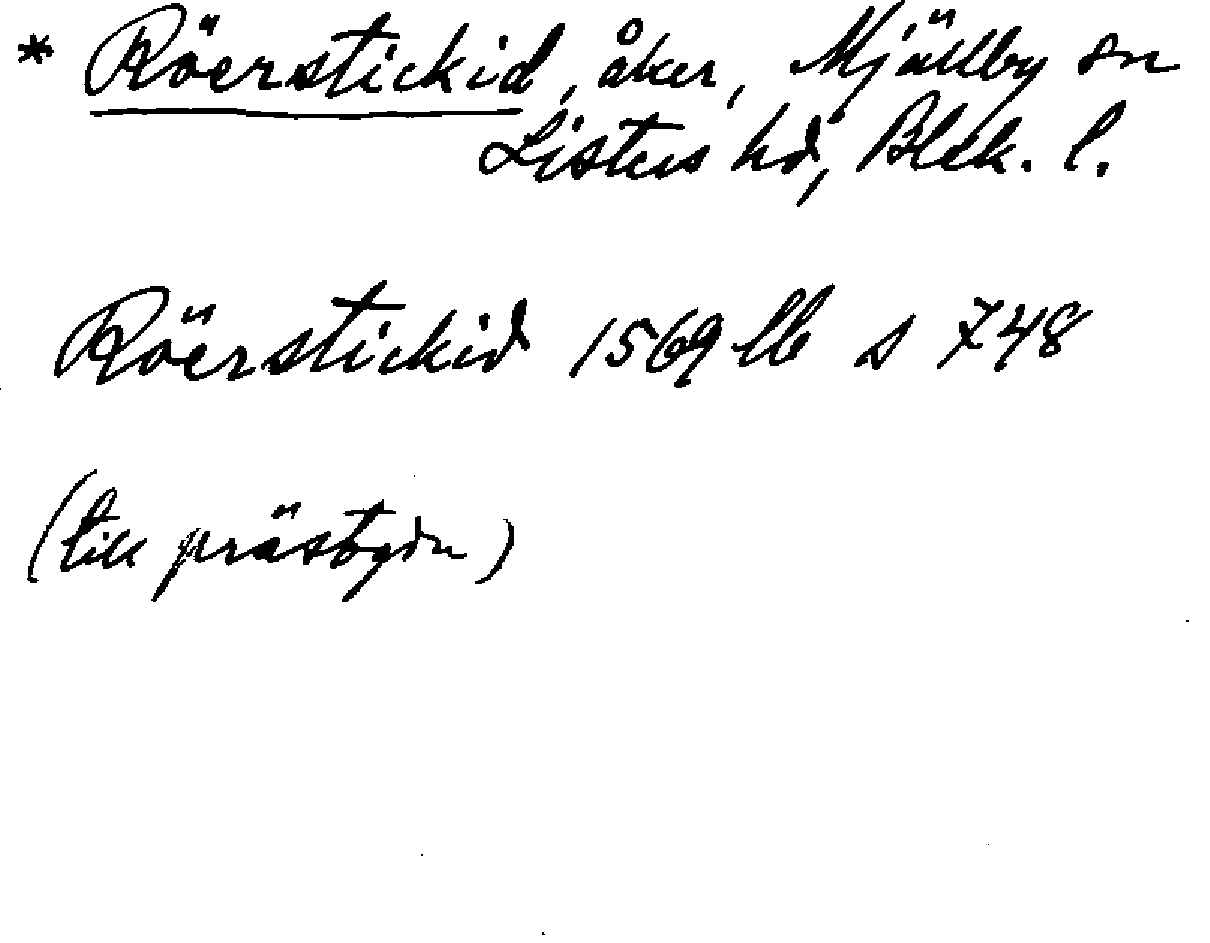 * Röerstickid, åker, Mjällby sn
Listers hd, Blek. l.
Röerstickid 1569 lb s 748
(till prästgdn)